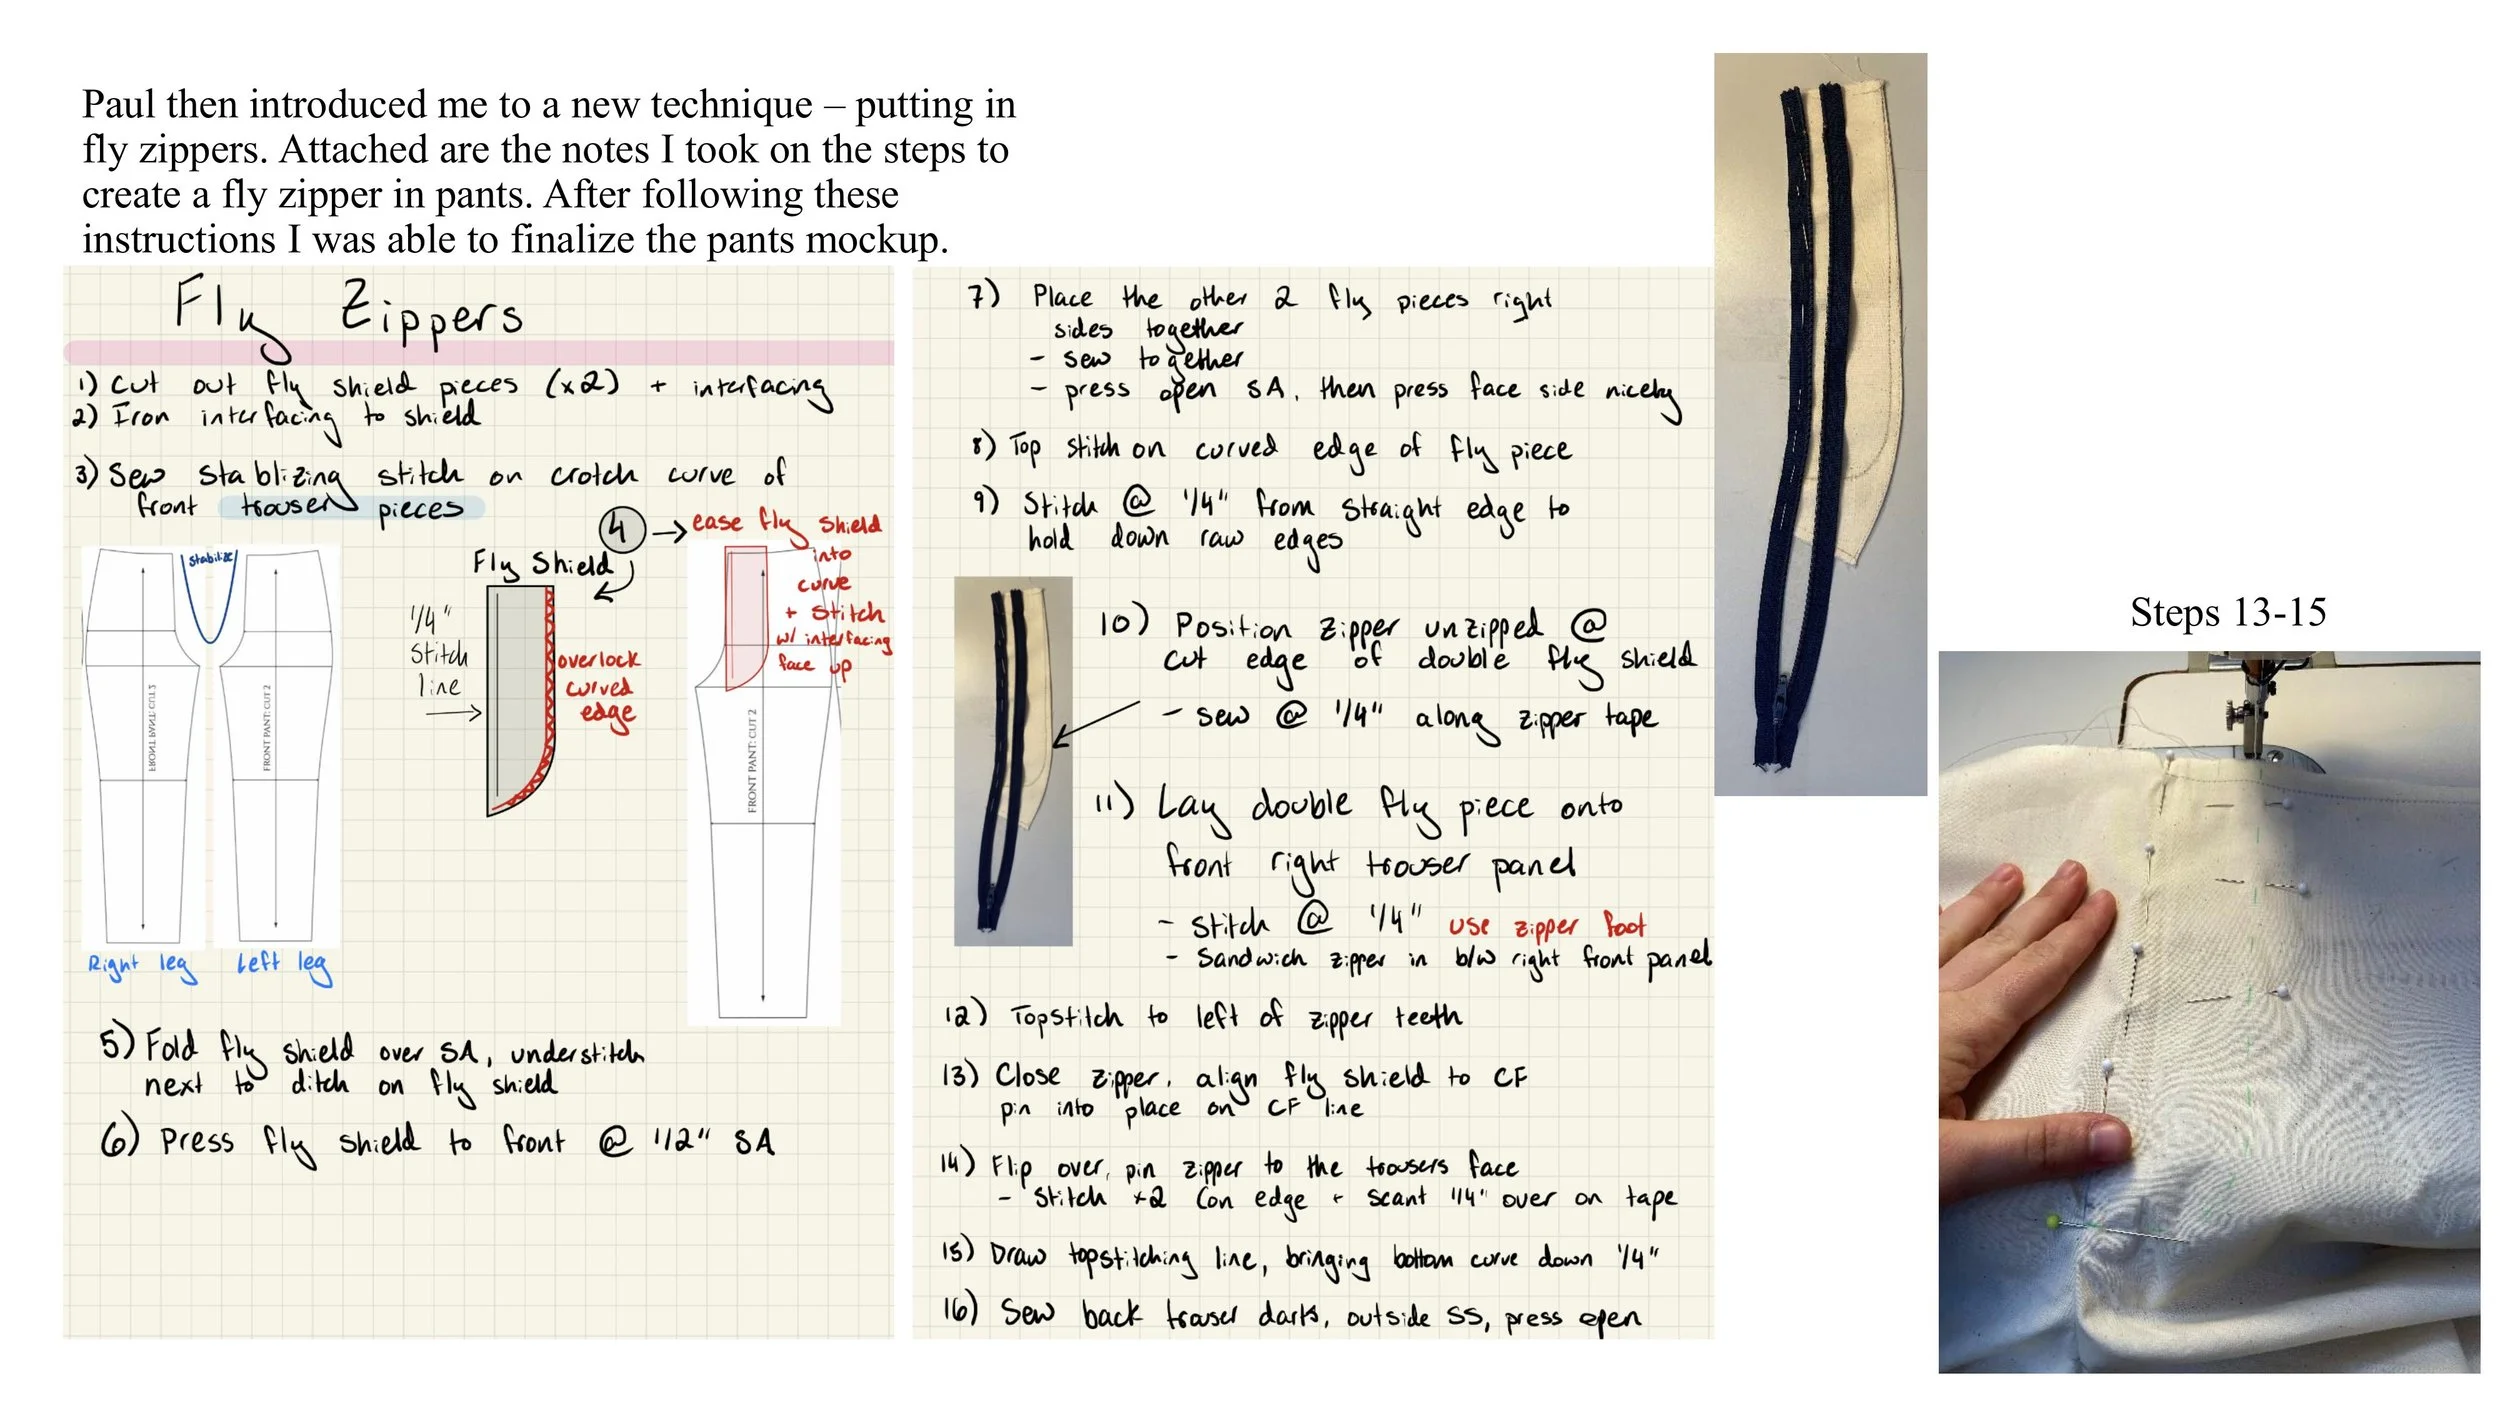 Paul then introduced me to a new technique – putting in
fly zippers. Attached are the notes I took on the steps to
create a fly zipper in pants. After following these
instructions I was able to finalize the pants mockup.
Fly Zippers
1) Cut out fly shield pieces (x2) + interfacing
2) Iron interfacing to shield
3) Sew stablizing stitch on crotch curve of
front trouser pieces
stabilize
FRONT PANT: CUT 2
FRONT PANT: CUT 2
Right leg
Left leg
4 → ease fly shield
into
curve
+ stitch
w/ interfacing
face up
Fly Shield
1/4"
stitch
line
overlock
curved
edge
FRONT PANT: CUT 2
5) Fold fly shield over SA, understitch
next to ditch on fly shield
6) Press fly shield to front @ 1/2" SA
7) Place the other 2 fly pieces right
sides together
- sew together
- press open SA, then press face side nicely
8) Top stitch on curved edge of fly piece
9) Stitch @ 1/4" from straight edge to
hold down raw edges
10) Position zipper unzipped @
cut edge of double fly shield
- sew @ 1/4" along zipper tape
11) Lay double fly piece onto
front right trouser panel
- Stitch @ 1/4" use zipper foot
- Sandwich zipper in b/w right front panel
12) Topstitch to left of zipper teeth
13) Close zipper, align fly shield to CF
pin into place on CF line
14) Flip over, pin zipper to the trousers face
- Stitch x2 (on edge + scant 1/4" over on tape
15) Draw topstitching line, bringing bottom curve down 1/4"
16) Sew back trouser darts, outside SS, press open
Steps 13-15